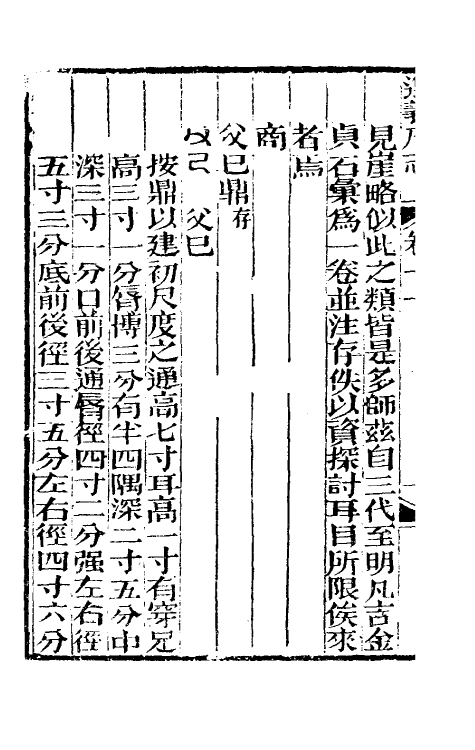 遵義府志 卷十一
見崖略似此之類皆是多師茲自三代至明凡吉金
貞石彙爲一卷並注存佚以資探討耳目所限俟來
者焉
商
父巳鼎存
父巳
按鼎以建初尺度之通高七寸耳高一寸有穿足
高三寸一分脣博三分有半四隅深二寸五分中
深三寸一分口前後通脣徑四寸二分强左右徑
五寸三分底前後徑三寸五分左右徑四寸六分